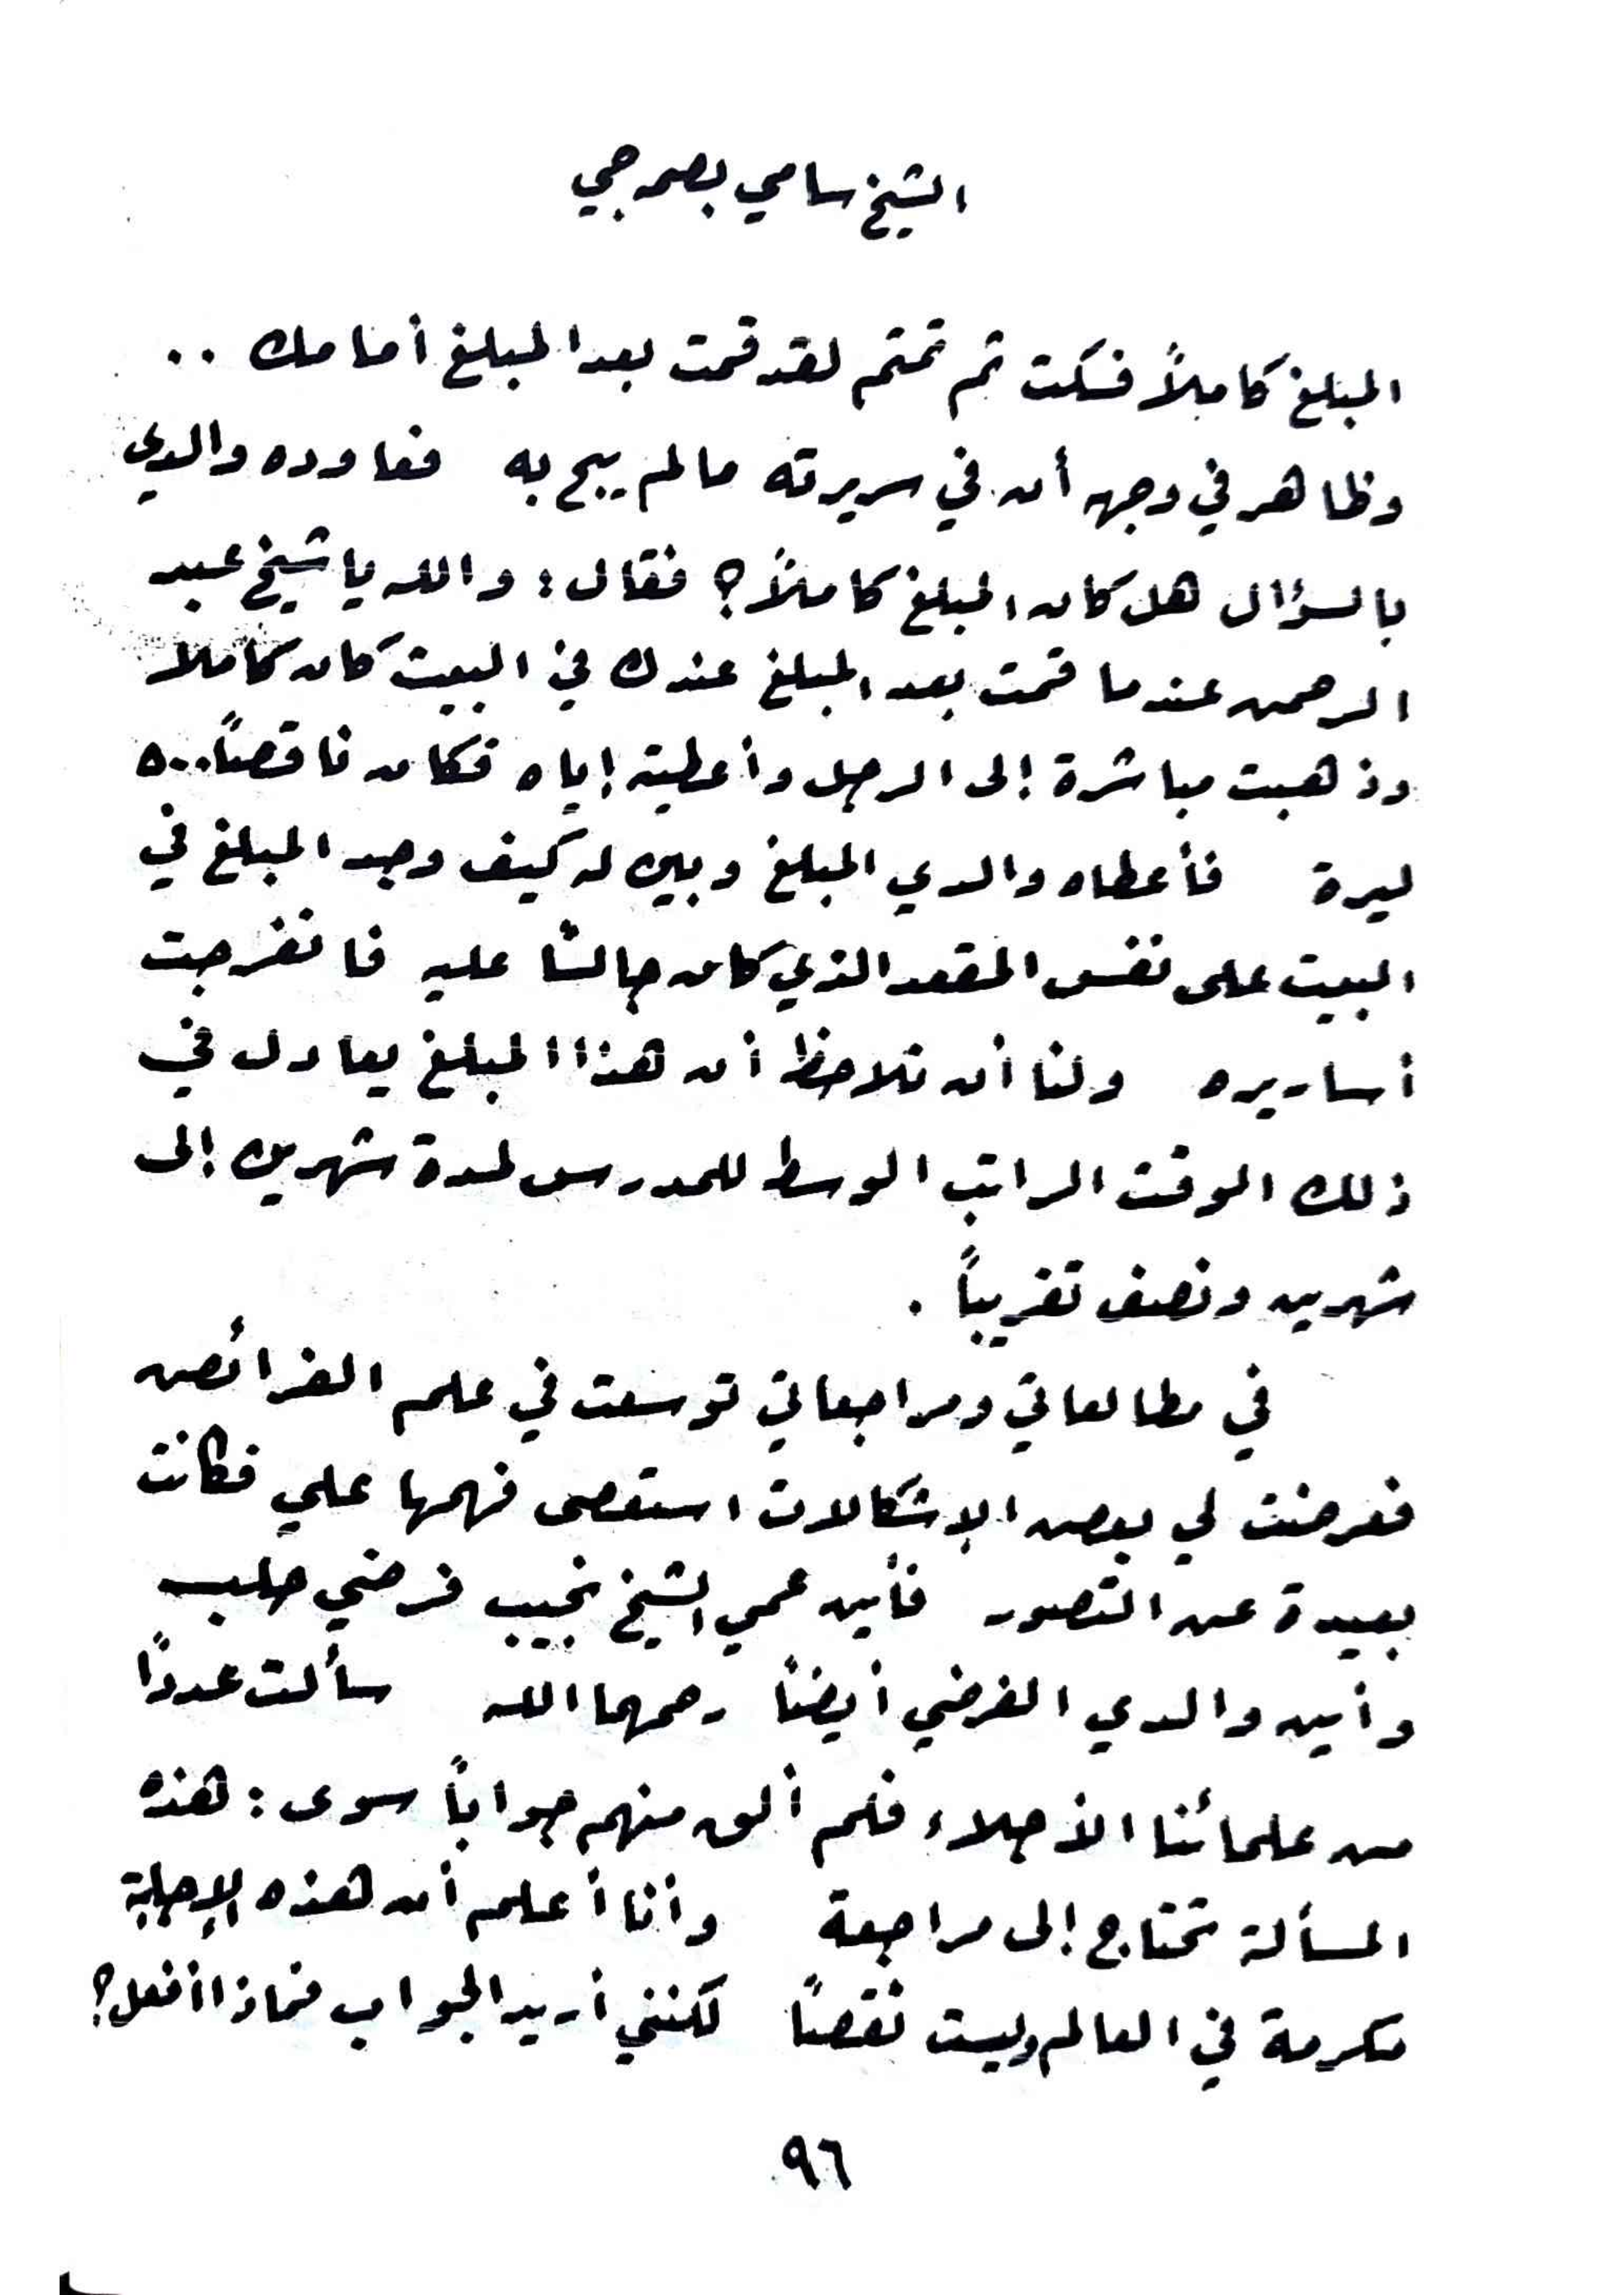 الشيخ سامي بصمه جي
المبلغ كاملاً فسكت ثم تمتم لقد قمت بعد المبلغ أمامك ..
وظاهر في وجهه أن في سريرته ما لم يبح به فعاوده والدي
بالسؤال هل كان المبلغ كاملاً؟ فقال : والله يا شيخ عبد
الرحمن عندما قمت بعد المبلغ عندك في البيت كان كاملاً
وذهبت مباشرة إلى الرجل وأعطيته إياه فكان ناقصاً ٥٠٠
ليرة فأعطاه والدي المبلغ وبين له كيف وجد المبلغ في
البيت على نفس المقعد الذي كان جالساً عليه فانفرجت
أساريره ولنا أن نلاحظ أن هذا المبلغ يعادل في
ذلك الوقت الراتب الوسط للمدرس لمدة شهرين إلى
شهرين ونصف تقريباً .
في مطالعاتي ومراجعاتي توسعت في علم الفرائض
فعرضت لي بعض الإشكالات استعصى فهمها علي فكانت
بعيدة عن التصور فأين عمي الشيخ نجيب فرضي حلب
وأين والدي الفرضي أيضاً رحمهما الله سألت عدداً
من علمائنا الأجلاء فلم ألق منهم جواباً سوى : هذه
المسألة تحتاج إلى مراجعة وأنا أعلم أن هذه الإجابة
مكرمة في العالم وليست نقصاً لكنني أريد الجواب فماذا أفعل؟
٩٦